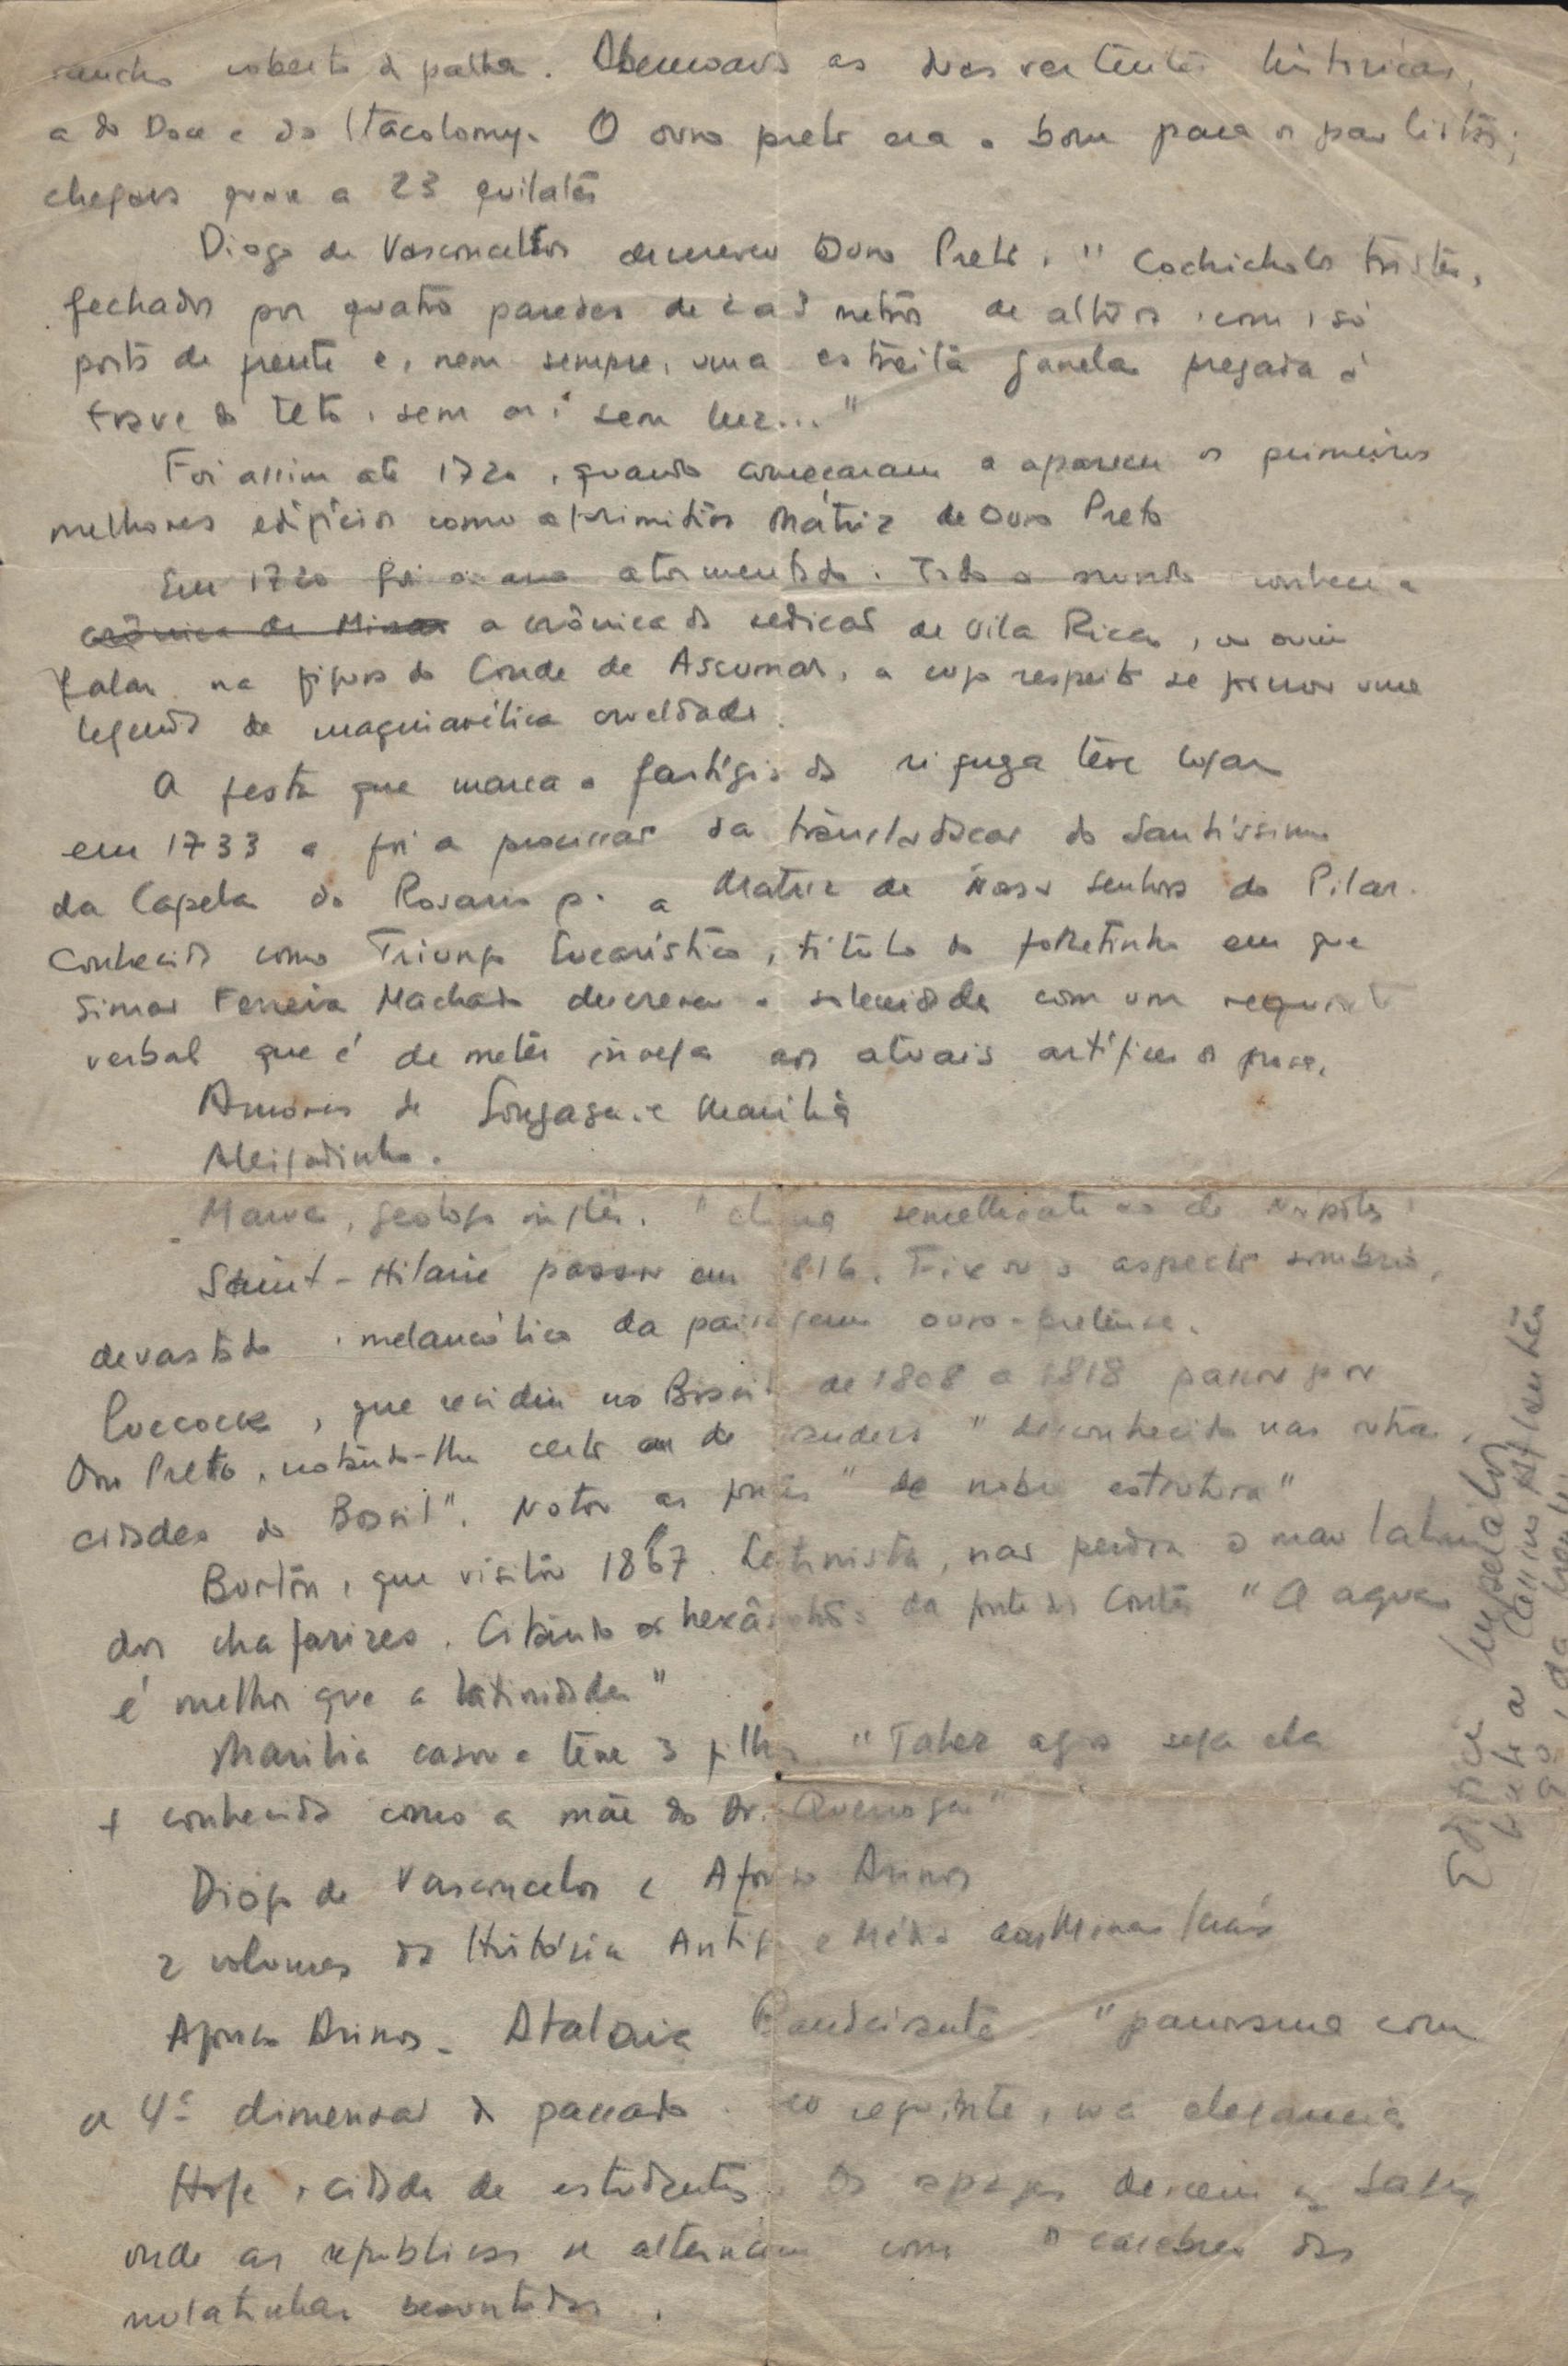 rancho coberto de palha. as duas vertentes históricas,
a do Doce e do Itacolomy. O ouro preto era o bom para os paulistas;
chegava quase a 23 quilates
Diogo de Vasconcellos descreveu Ouro Preto. " Cochicholos tristes,
fechados por quatro paredes de 2 a 3 metros de altura, com 1 só
porta de frente e, nem sempre, uma estreita janela pregada à
trave do teto, sem ar, sem luz..."
Foi assim até 1720, quando começaram a aparecer os primeiros
melhores edifícios como a primitiva Matriz de Ouro Preto
Em 1720 foi o ano atormentado. Todo o mundo conhece a
crônica de Minas a crônica da sedição de Vila Rica, ou ouviu
falar na figura do Conde de Assumar, a cujo respeito se formou uma
legenda de maquiavélica crueldade.
A festa que marca o fastígio da teve lugar
em 1733 e foi a procissão da transladação do Santíssimo
da Capela do Rosario p. a Matriz de Nossa Senhora do Pilar.
Conhecida como Triunfo Eucarístico, título do folhetinho em que
Simão Ferreira Machado descreveu a solenidade com um requinte
verbal que é de meter inveja aos atuais artífices da prosa.
Amores de Gonzaga e Marília
Aleijadinho.
Mawe, geologo inglês. "clima semelhante ao de Napoles"
Saint-Hilaire passou em 1816. Fixou o aspecto sombrio,
devastado, melancólico da paisagem ouro-pretense.
Luccock, que residiu no Brasil de 1808 a 1818 passou por
Ouro Preto, notando-lhe certo ar de "desconhecido nas outras
cidades do Brasil". Notou as pontes "de nobre estrutura"
Burton, que visitou 1867. Latinista, não perdoa o mau latim
dos chafarizes. Citando os hexâmetros da fonte dos Contos "A agua
é melhor que a latinidade"
Marilia casou e teve 3 filhos "Talvez agora seja ela
+ conhecida como a mãe do Dr. Queiroga"
Diogo de Vasconcelos e Afonso Arinos
2 volumes da História Antiga e Média das Minas Gerais
Afonso Arinos - Atalaia Bandeirante "panorama com
a 4ª dimensão do passado. no requinte, na elegancia
Hoje, cidade de estudantes. Os descem as
onde as republicas se alternam com os casebres das
mulatinhas